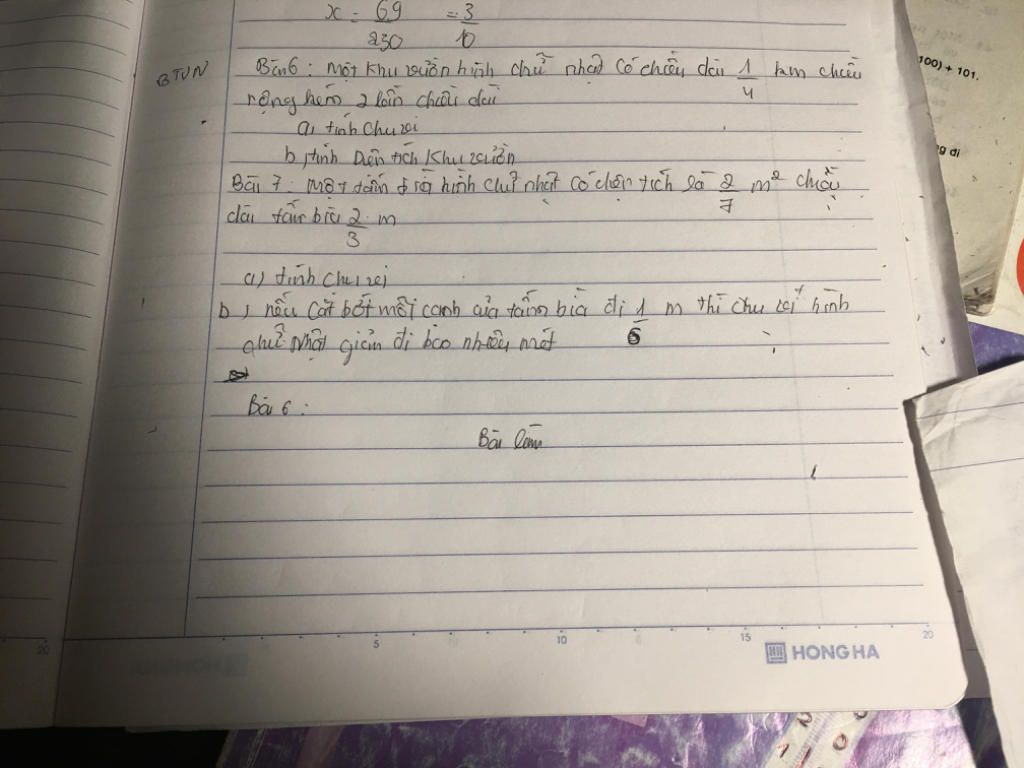 x = 69/230 = 3/10
100) + 101.
BTVN
Bài 6 : Một khu vườn hình chữ nhật có chiều dài 1/4 km chiều
rộng kém 2 lần chiều dài
g di
a, tính chu vi
b, tính Diện tích khu vườn
Bài 7 : Một tấm bìa hình chữ nhật có diện tích là 2/7 m² chiều
dài tấm bìa 2/3 m
a) tính chu vi
b, nếu cắt bớt mỗi cạnh của tấm bìa đi 1/6 m thì chu vi hình
chữ nhật giảm đi bao nhiêu mét
Bài 6 :
Bài làm
20 5 10 15 20
HONG HA